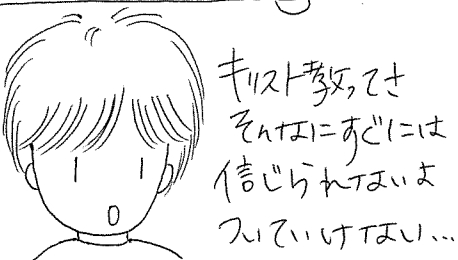 キリスト教ってさ
そんなにすぐには
信じられないよ
ついていけない…